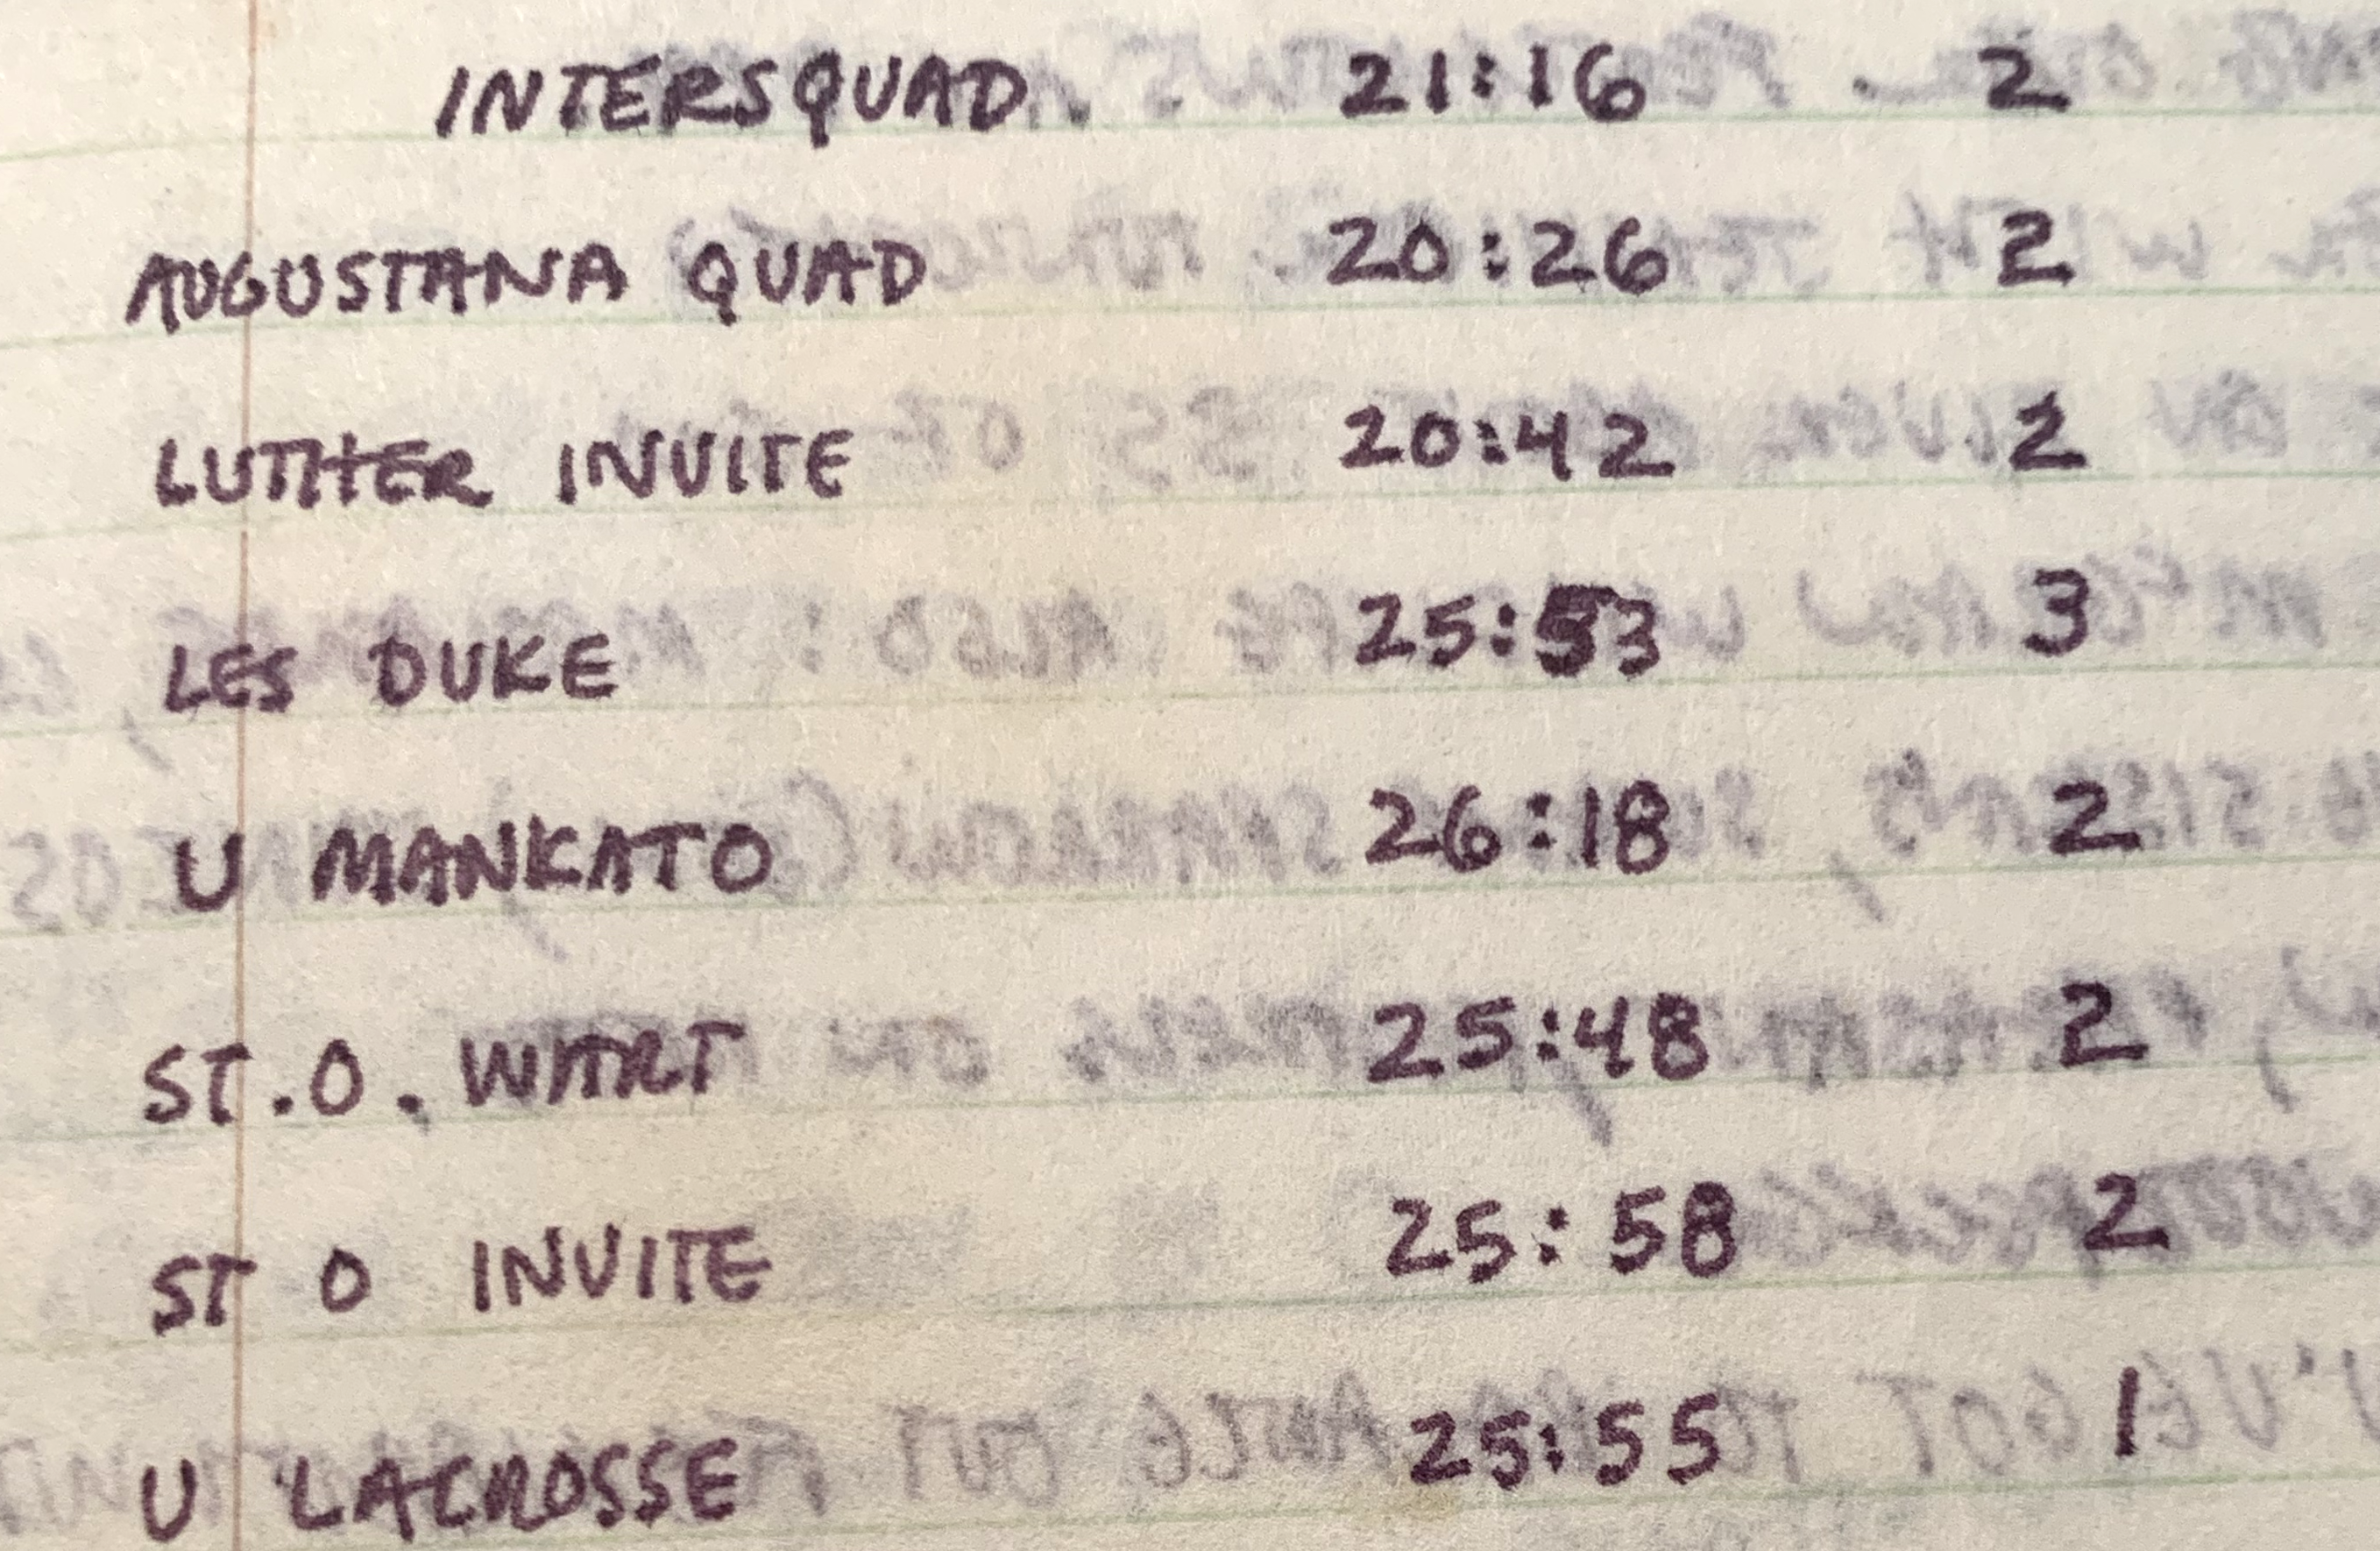 INTERSQUAD 21:16 2
AUGUSTANA QUAD 20:26 2
LUTHER INVITE 20:42 2
LES DUKE 25:53 3
U MANKATO 26:18 2
ST.O. WART 25:48 2
ST O INVITE 25:58 2
U LACROSSE 25:55 1